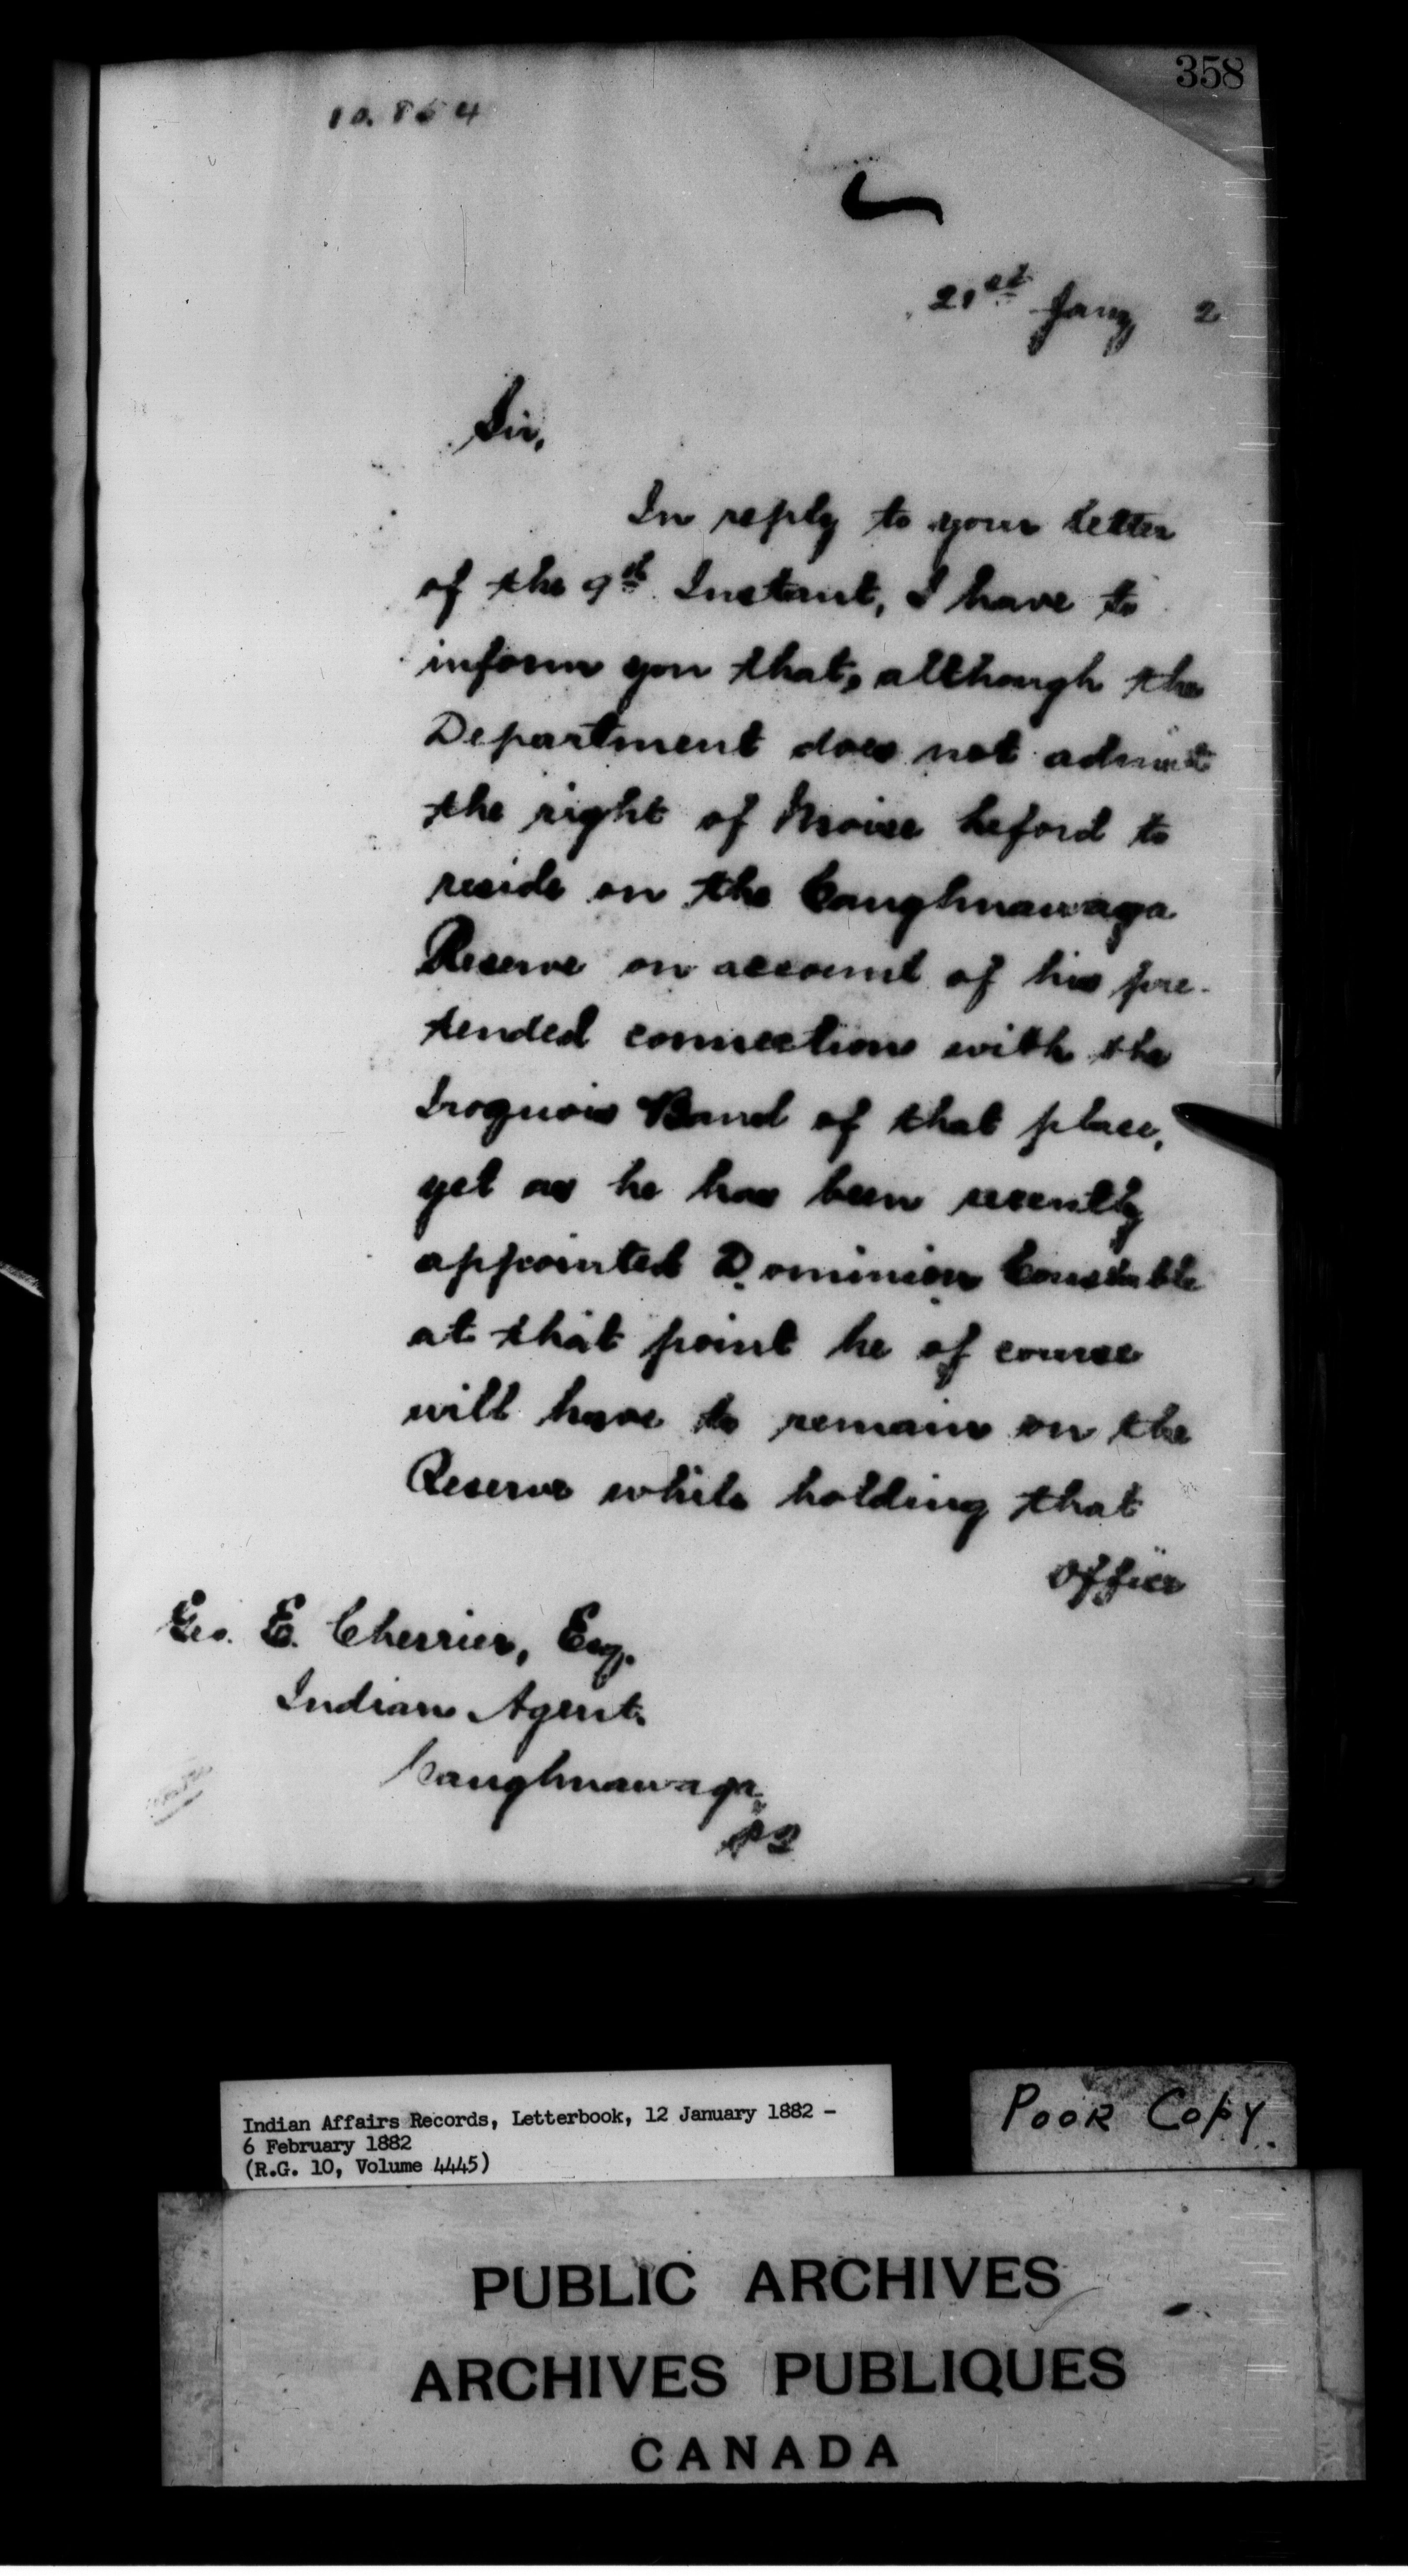 358
10.864
21st Jany 2
Sir,
In reply to your letter
of the 9th Instant, I have to
inform you that, although the
Department does not admit
the right of Moise Leford to
reside on the Caughnawaga
Reserve on account of his pre-
tended connection with the
Iroquois Band of that place,
yet as he has been recently
appointed Dominion Constable
at that point he of course
will have to remain on the
Reserve while holding that
office
Geo. E. Cherrier, Esq.
Indian Agent.
Caughnawaga.
PQ
Indian Affairs Records, Letterbook, 12 January 1882 -
6 February 1882
(R.G. 10, Volume 4445)
POOR COPY.
PUBLIC ARCHIVES
ARCHIVES PUBLIQUES
CANADA